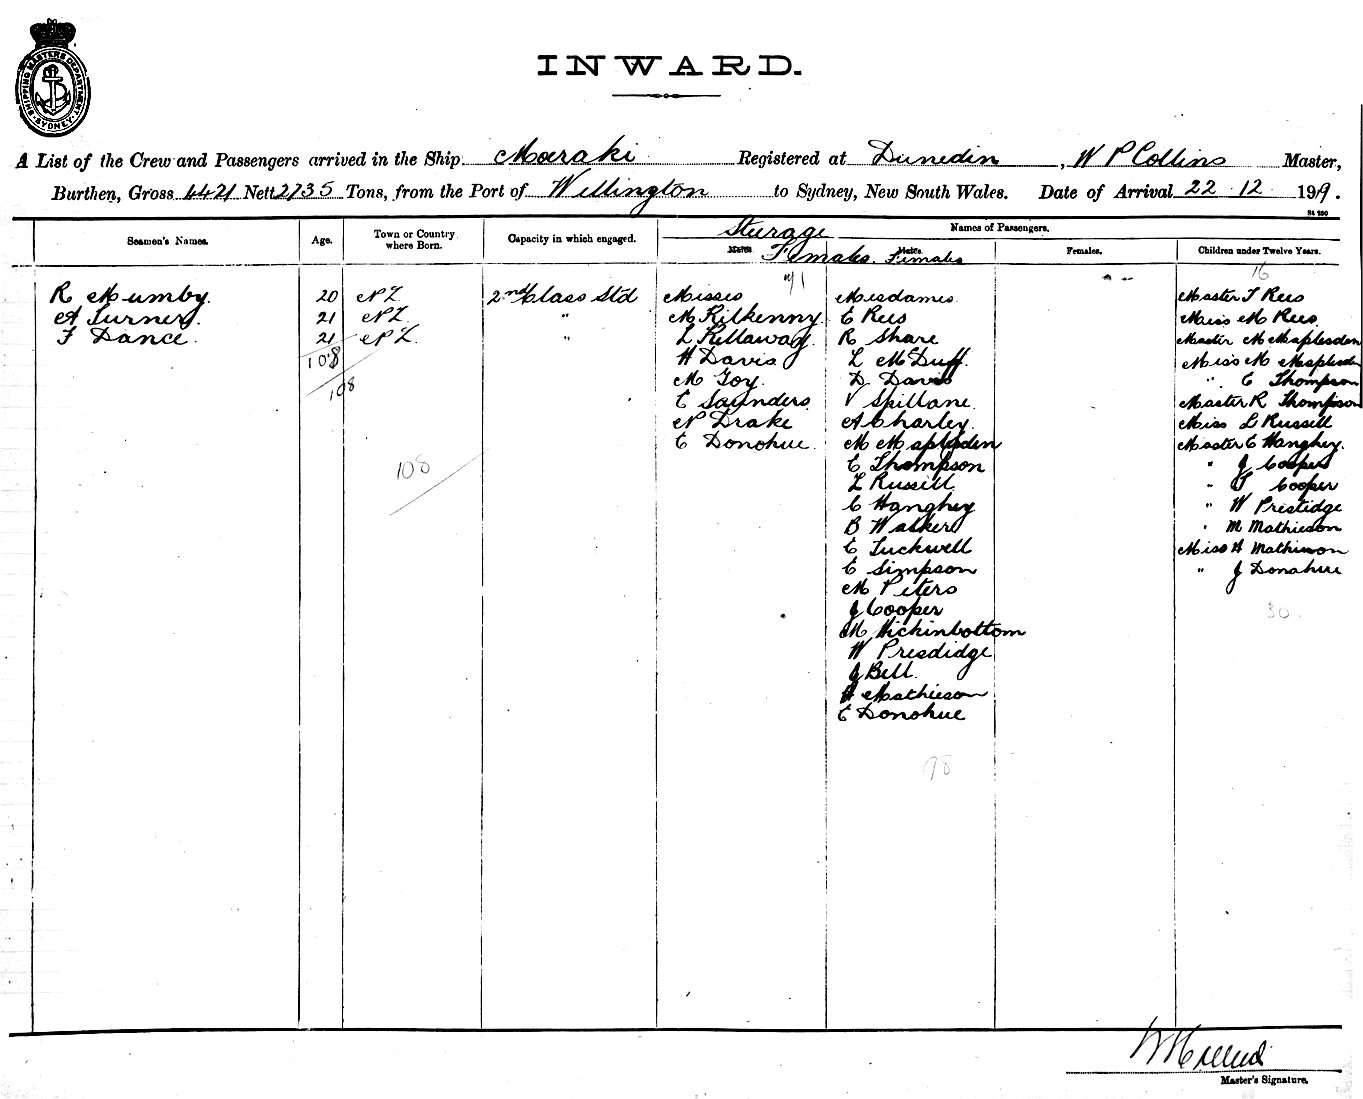 SHIPPING MASTERS DEPARTMENT
SYDNEY
INWARD.
A List of the Crew and Passengers arrived in the Ship Moeraki Registered at Dunedin, W P Collins Master,
Burthen, Gross 4421 Nett 2735 Tons, from the Port of Wellington to Sydney, New South Wales. Date of Arrival 22 12 1919.
Seamen's Names.
Age.
Town or Country where Born.
Capacity in which engaged.
Names of Passengers.
Sturage
Females.
Females
Females.
Children under Twelve Years.
R Mumby. 20 NZ 2nd Class Std
A Turner. 21 NZ "
F Dance. 21 NZ. "
108
108
108
Misses
M Kilkenny
L Kellaway
H Davis
M Toy.
E Saunders
N Drake
E Donohue.
Mesdames
E Rees
R Share
L McDuff.
D Davis
V Spillane.
A Charley.
M Maplesden
E Thompson
L Russell
C Hanghey
B Walker
E Tuckwell
E Simpson
M Peters
J Cooper
M Hickinbottom
W Presdidge
J Bell.
H Mathieson
E Donohue
78
16
Master T Rees
Miss M Rees
Master M Maplesden
Miss M Maplesden
" E Thompson
Master R Thompson
Miss L Russell
Master C Hanghey.
" J Cooper
" T Cooper
" W Prestidge
" M Mathieson
Miss H Mathieson
" J Donahue
30.
Master's Signature.